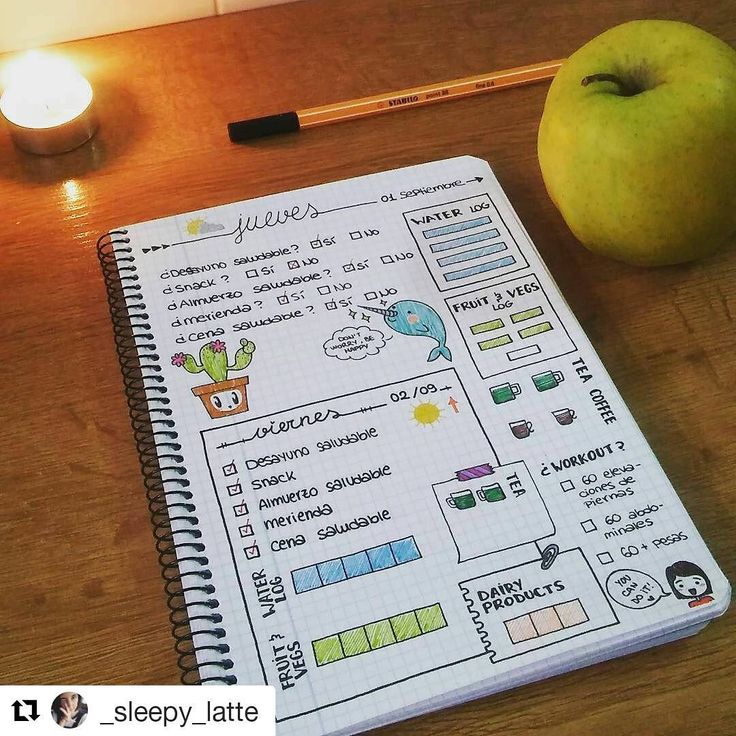 STABILO point 88 fine 0,4
jueves
01 Septiembre
¿Desayuno saludable? Sí No
¿Snack? Sí No
¿Almuerzo saludable? Sí No
¿merienda? Sí No
¿Cena saludable? Sí No
DON'T
WORRY, BE
HAPPY
WATER LOG
FRUIT & VEGS
LOG
TEA COFFEE
viernes
02/09
Desayuno saludable
Snack
Almuerzo saludable
merienda
Cena saludable
WATER
LOG
FRUIT &
VEGS
TEA
DAIRY
PRODUCTS
¿WORKOUT?
60 eleva-
ciones de
piernas
60 abdo-
minales
60+ pesas
YOU
CAN
DO IT!
_sleepy_latte